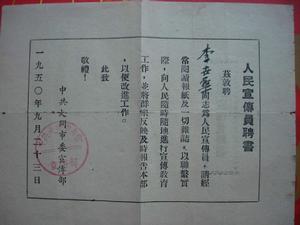 人民宣傳員聘書
茲敦聘
李 同志爲人民宣傳員,請經
常閱讀報紙及一切雜誌,以聯繫實
際,向人民隨時隨地進行宣傳教育
工作,並將群衆反映及時報告本部
,以便改進工作。
此致
敬禮!
中共大同市委宣傳部
一九五〇年九月二十三日